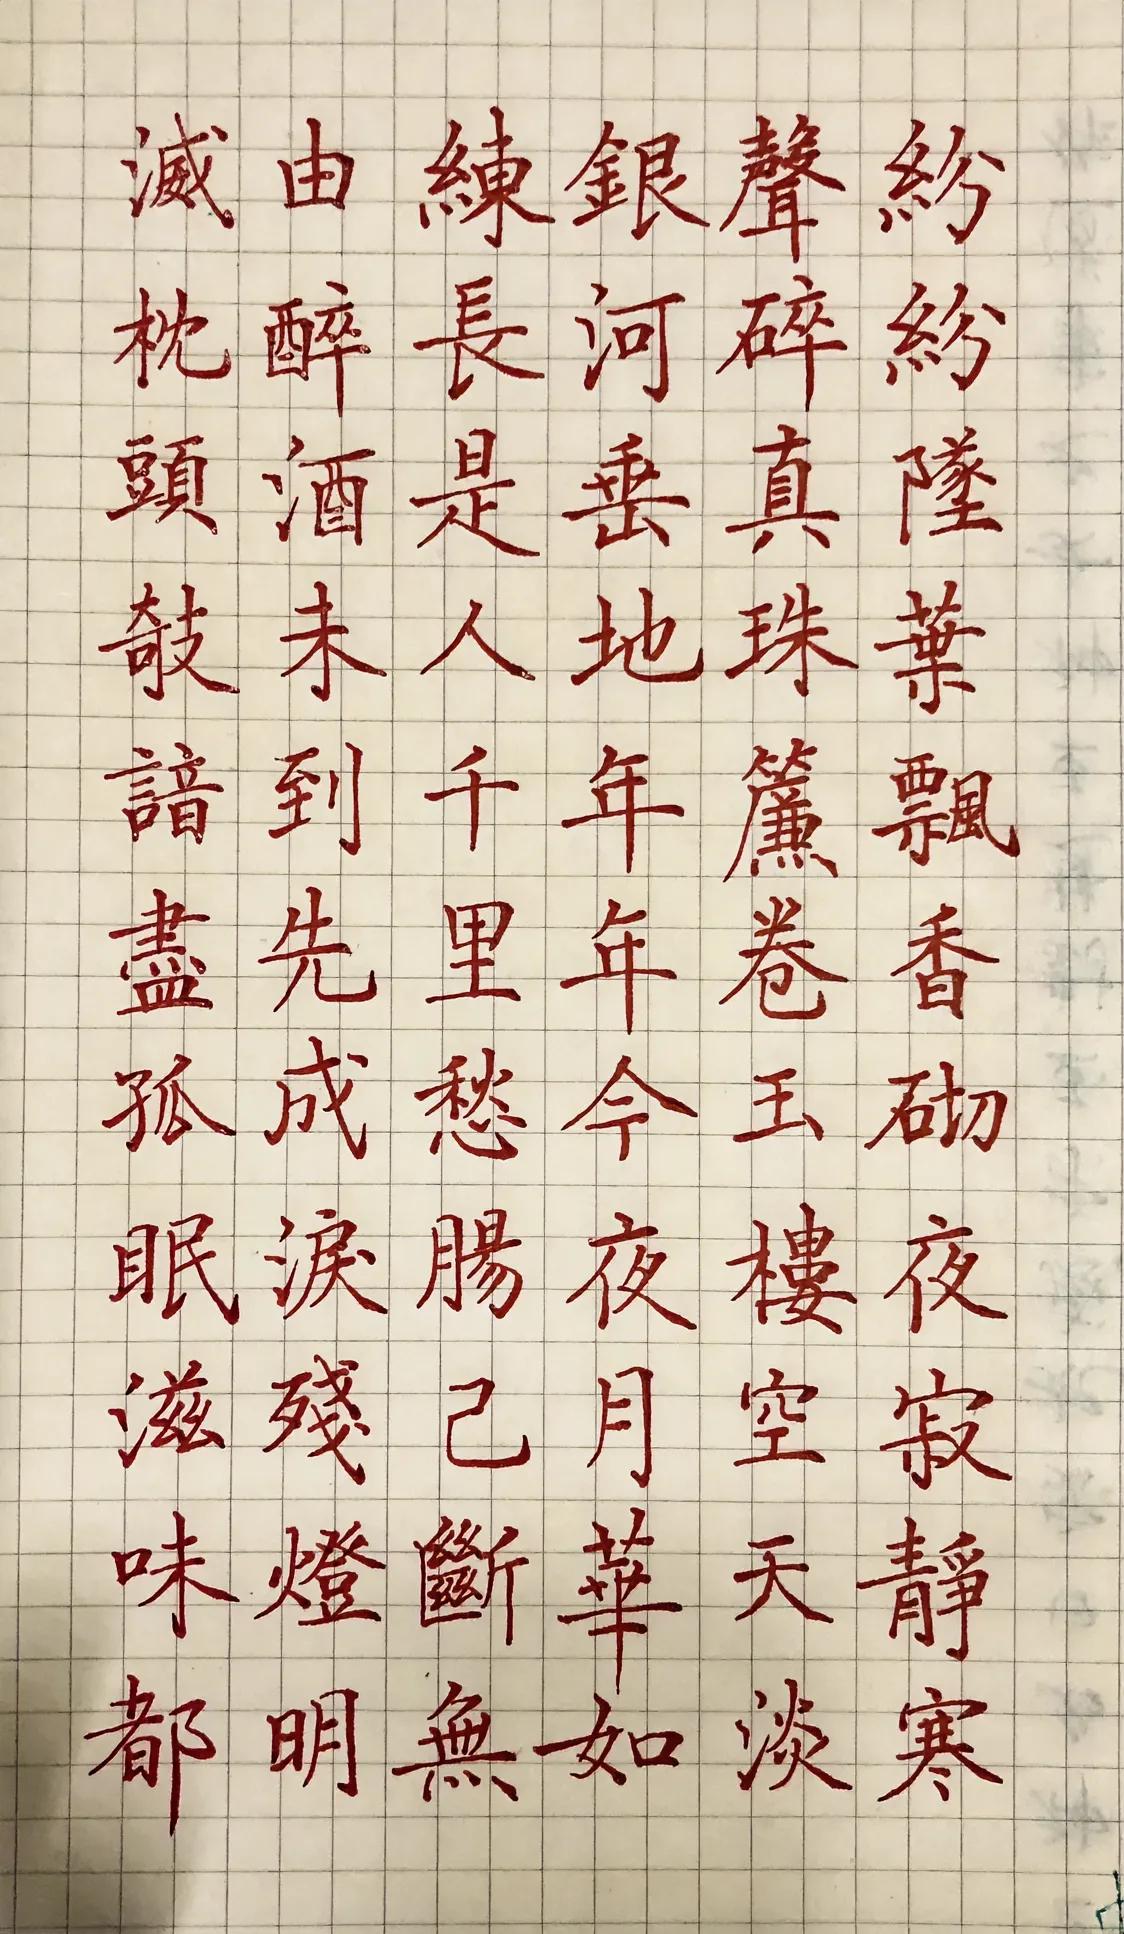 紛紛墜葉飄香砌夜寂靜寒
聲碎真珠簾卷玉樓空天淡
銀河垂地年年今夜月華如
練長是人千里愁腸己斷無
由醉酒未到先成淚殘燈明
滅枕頭攲諳盡孤眠滋味都